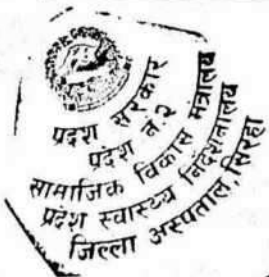 प्रदेश सरकार
प्रदेश नं.२
सामाजिक विकास मंत्रालय
प्रदेश स्वास्थ्य निर्देशनालय
जिल्ला अस्पताल, सिरहा